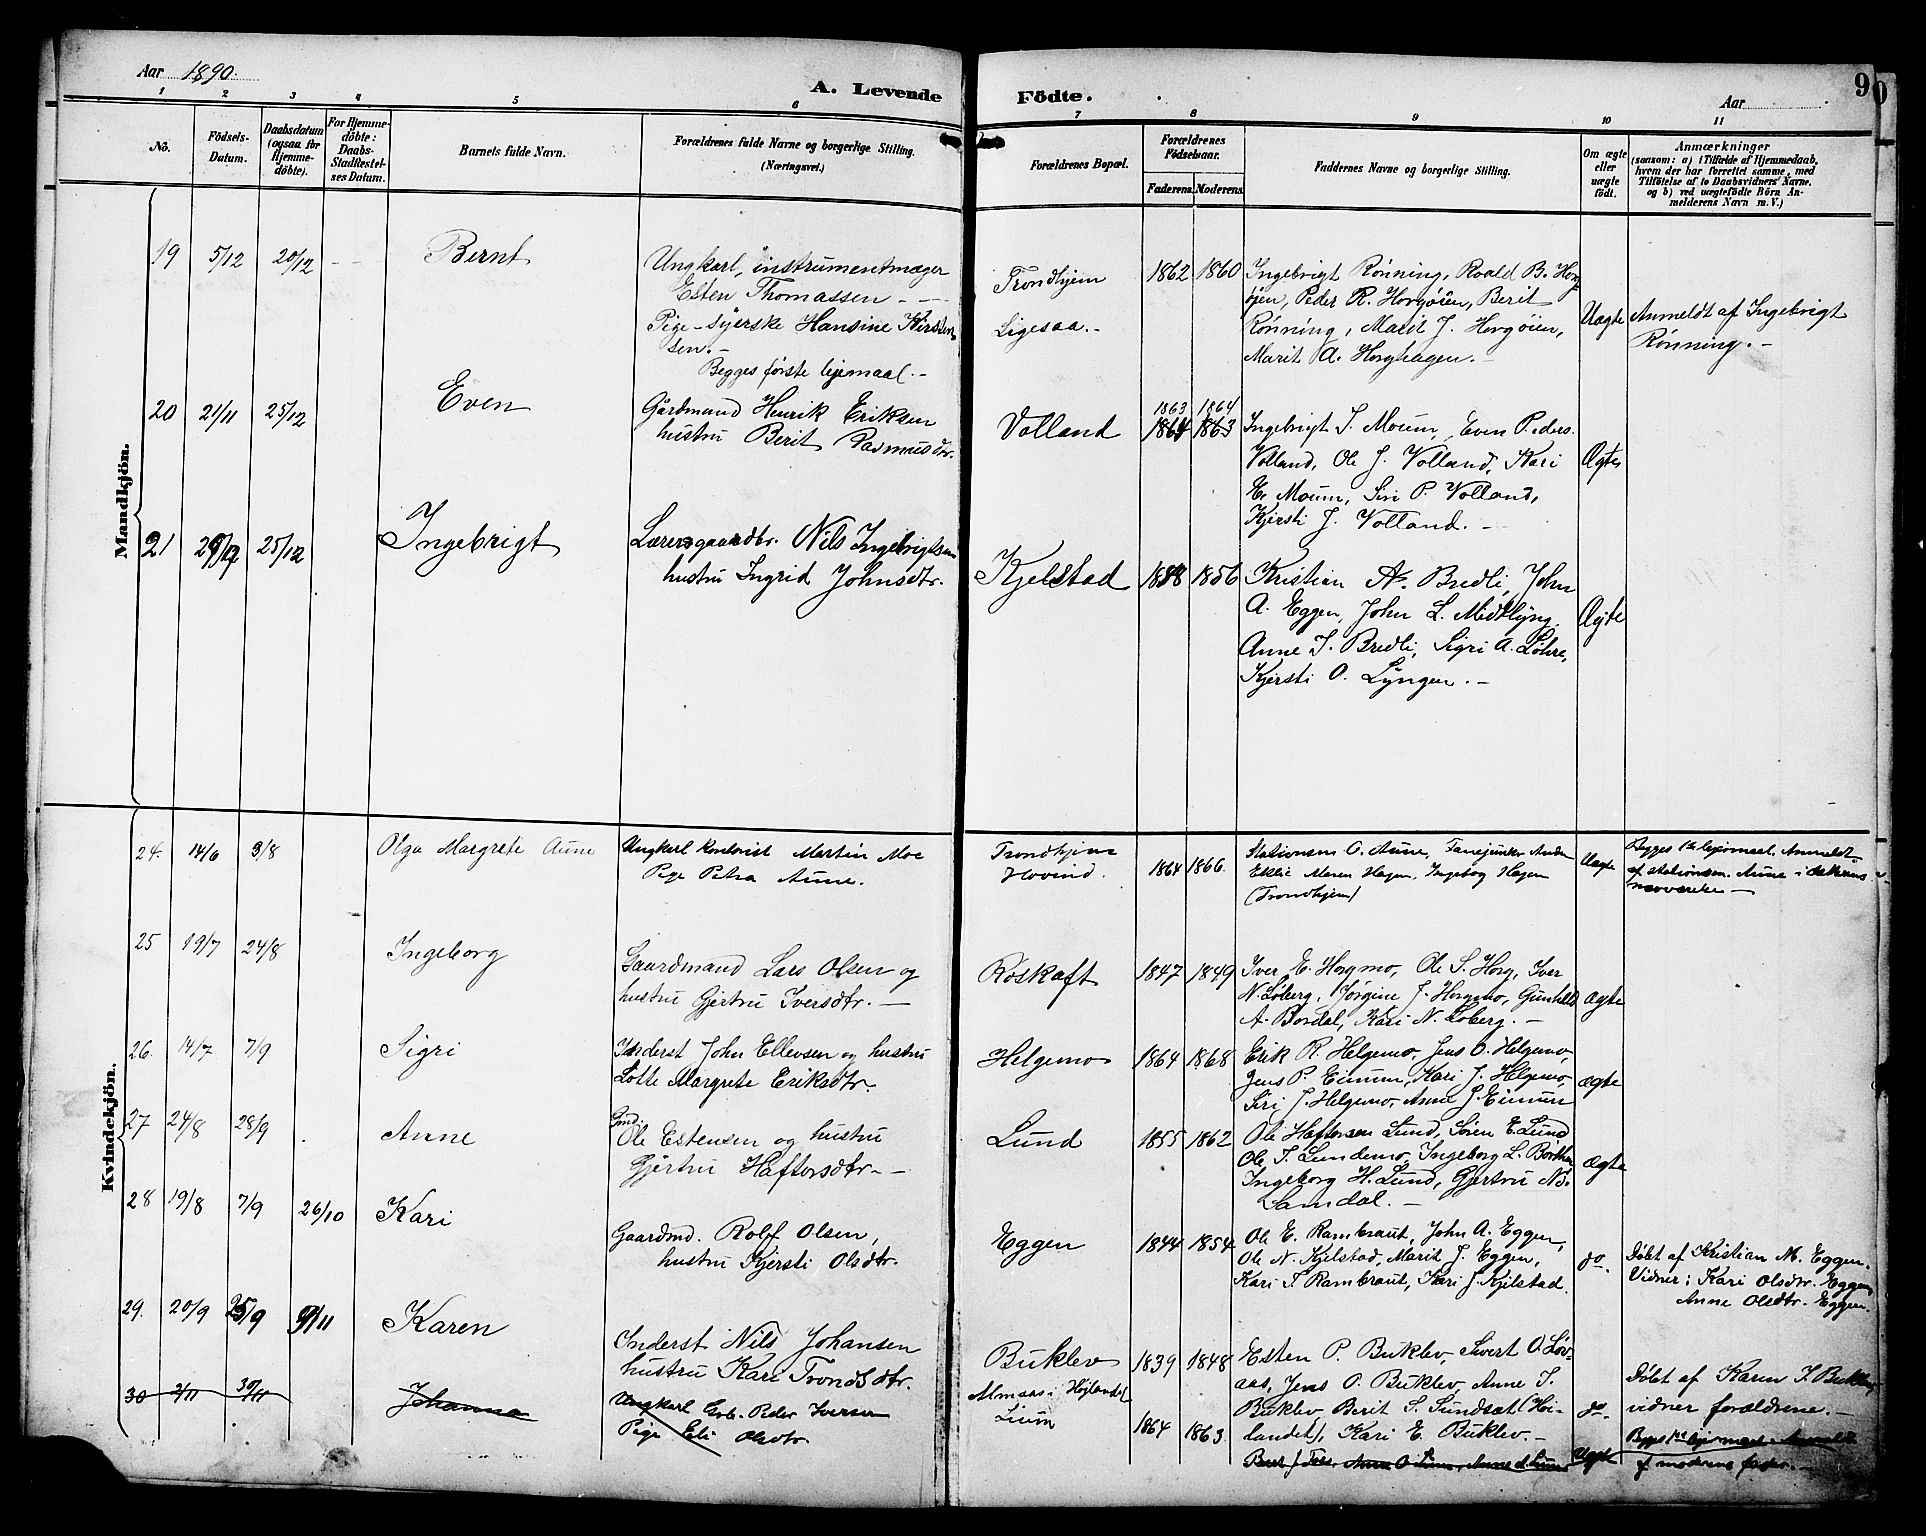 Aar 1890.
A. Levende Födte.
Aar
90
1 2 3 4 5 6 7 8 9 10 11
No.
Födsels-Datum.
Daabsdatum (ogsaa for Hjemme-döbte).
For Hjemme-döbte: Daabs-Stadfæstel-ses Datum.
Barnets fulde Navn.
Forældrenes fulde Navne og borgerlige Stilling.
(Næringsvei.)
Forældrenes Bopæl.
Forældrenes Födselsaar.
Faderens. Moderens.
Faddernes Navne og borgerlige Stilling.
Om ægte eller uægte födt.
Anmærkninger
(saasom: a) i Tilfælde af Hjemmedaab,
hvem der har forrettet samme, med
Tilföielse af to Daabsvidners Navne.
og b) ved uægtefödte Börn An-
melderens Navn m.V.)
Mandkjön.
19 5/12 20/12 - - Bernt
Ungkarl, instrumentmager
Esten Thomassen - -
Pige - syerske Hansine
sen. -
Begges første lejemaal. -
Trondhjem
Ligesaa. -
1862 1860
Ingebrigt Rønning, Roald B. Horg
øien, Peder R. Horgøien, Berit
Rønning, Marit J. Horgøien,
Marit A. Horghagen. -
Uægte
Anmeldt af Ingebrigt
Rønning. -
20 21/11 25/12 Even
Gårdmand Henrik Eriksen
hustru Berit Rasmusdtr.
Volland
1863 1864
1864 1863
Ingebrigt J. Moum, Even Peders.
Volland, Ole J. Volland, Kari
E. Moum, Siri P. Volland,
Kjersti J. Volland. -
Ægte
21 25/12 Ingebrigt
Lærer gaardbr. Nils Ingebrigtsen
hustru Ingrid Johnsdtr.
Kjelstad
1858 1856
Kristian A. Bredli, John
A. Eggen, John L. Midtlyng.
Anne J. Bredli, Sigri A. Løhre,
Kjersti O. Lyngen. -
Ægte
Kvindekjön.
24. 14/6 3/8 Olga Margrete Aune
Ungkarl kontorist Martin Moe
Pige Petra Aune.
Trondhjem
Hovind.
1864 1866.
Stationsm O. Aune, Fanejunker Anders
Eklie Maren Hagen, Ingeborg Hagen
(Trondhjem)
Uægte
Begges 1te lejermaal. Anmeldt
af stationsm. Aune i
nærværelse -
25 19/7 24/8 Ingeborg
Gaardmand Lars Olsen og
hustru Gjertru Iversdtr. -
Röskaft
1847 1849
Iver E. Horgmo, Ole S. Horg, Iver
N. Løberg, Jørgine J. Horgmo, Gunhild
A. Bordal, Kari N. Løberg. -
ægte
26. 14/7 7/9 Sigri
Inderst John Ellevsen og hustru
Lotte Margrete Eriksdtr.
Helgemo
1864 1868
Erik R. Helgemo, Jens O. Helgemo,
Jens P. Eimum, Kari J. Helgemo,
Siri J. Helgemo, Anne J. Eimum
ægte
27 24/8 28/9 Anne
Gmd.
Ole Estensen og hustru
Gjertru Haftorsdtr. -
Lund
1855 1862
Ole Haftorsen Lund, Søren E. Lund
Ole T. Lundemo, Ingeborg L. Borthen
Ingeborg H. Lund, Gjertru
Samdal. -
ægte
28 19/8 7/9 26/10 Kari
Gaardmd. Rolf Olsen,
hustru Kjersti Olsdtr.
Eggen
1844 1854
Ole E. Rambraut, John A. Eggen,
Ole N. Kjelstad, Marit J. Eggen,
Kari T. Rambraut, Kari J. Kjelstad.
do.
Døbt af Kristian M. Eggen.
Vidner: Kari Olsdtr. Eggen
Anne Olsdtr. Eggen.
29. 20/9 25/9 9/11 Karen
Inderst Nils Johansen
hustru Kari Trondsdtr.
Buklev
1839 1848
Esten P. Buklev, Sivert O. Løv-
aas, Jens O. Buklev, Anne T.
Buklev Berit S. Sundsæt (Høi-
landet), Kari E. Buklev. -
do.
Døbt af Karen T. Buklev
vidner forældrene. -
30 2/11 30/11 Johanna
Ungkarl Peder Iversen
Pige Eli Olsdtr.
Almaas i Højlandet
Lium
1864 1863.
Anne O
Uægte
Begges 1ste lejermaal. Anmeldt
af moderens fader. -